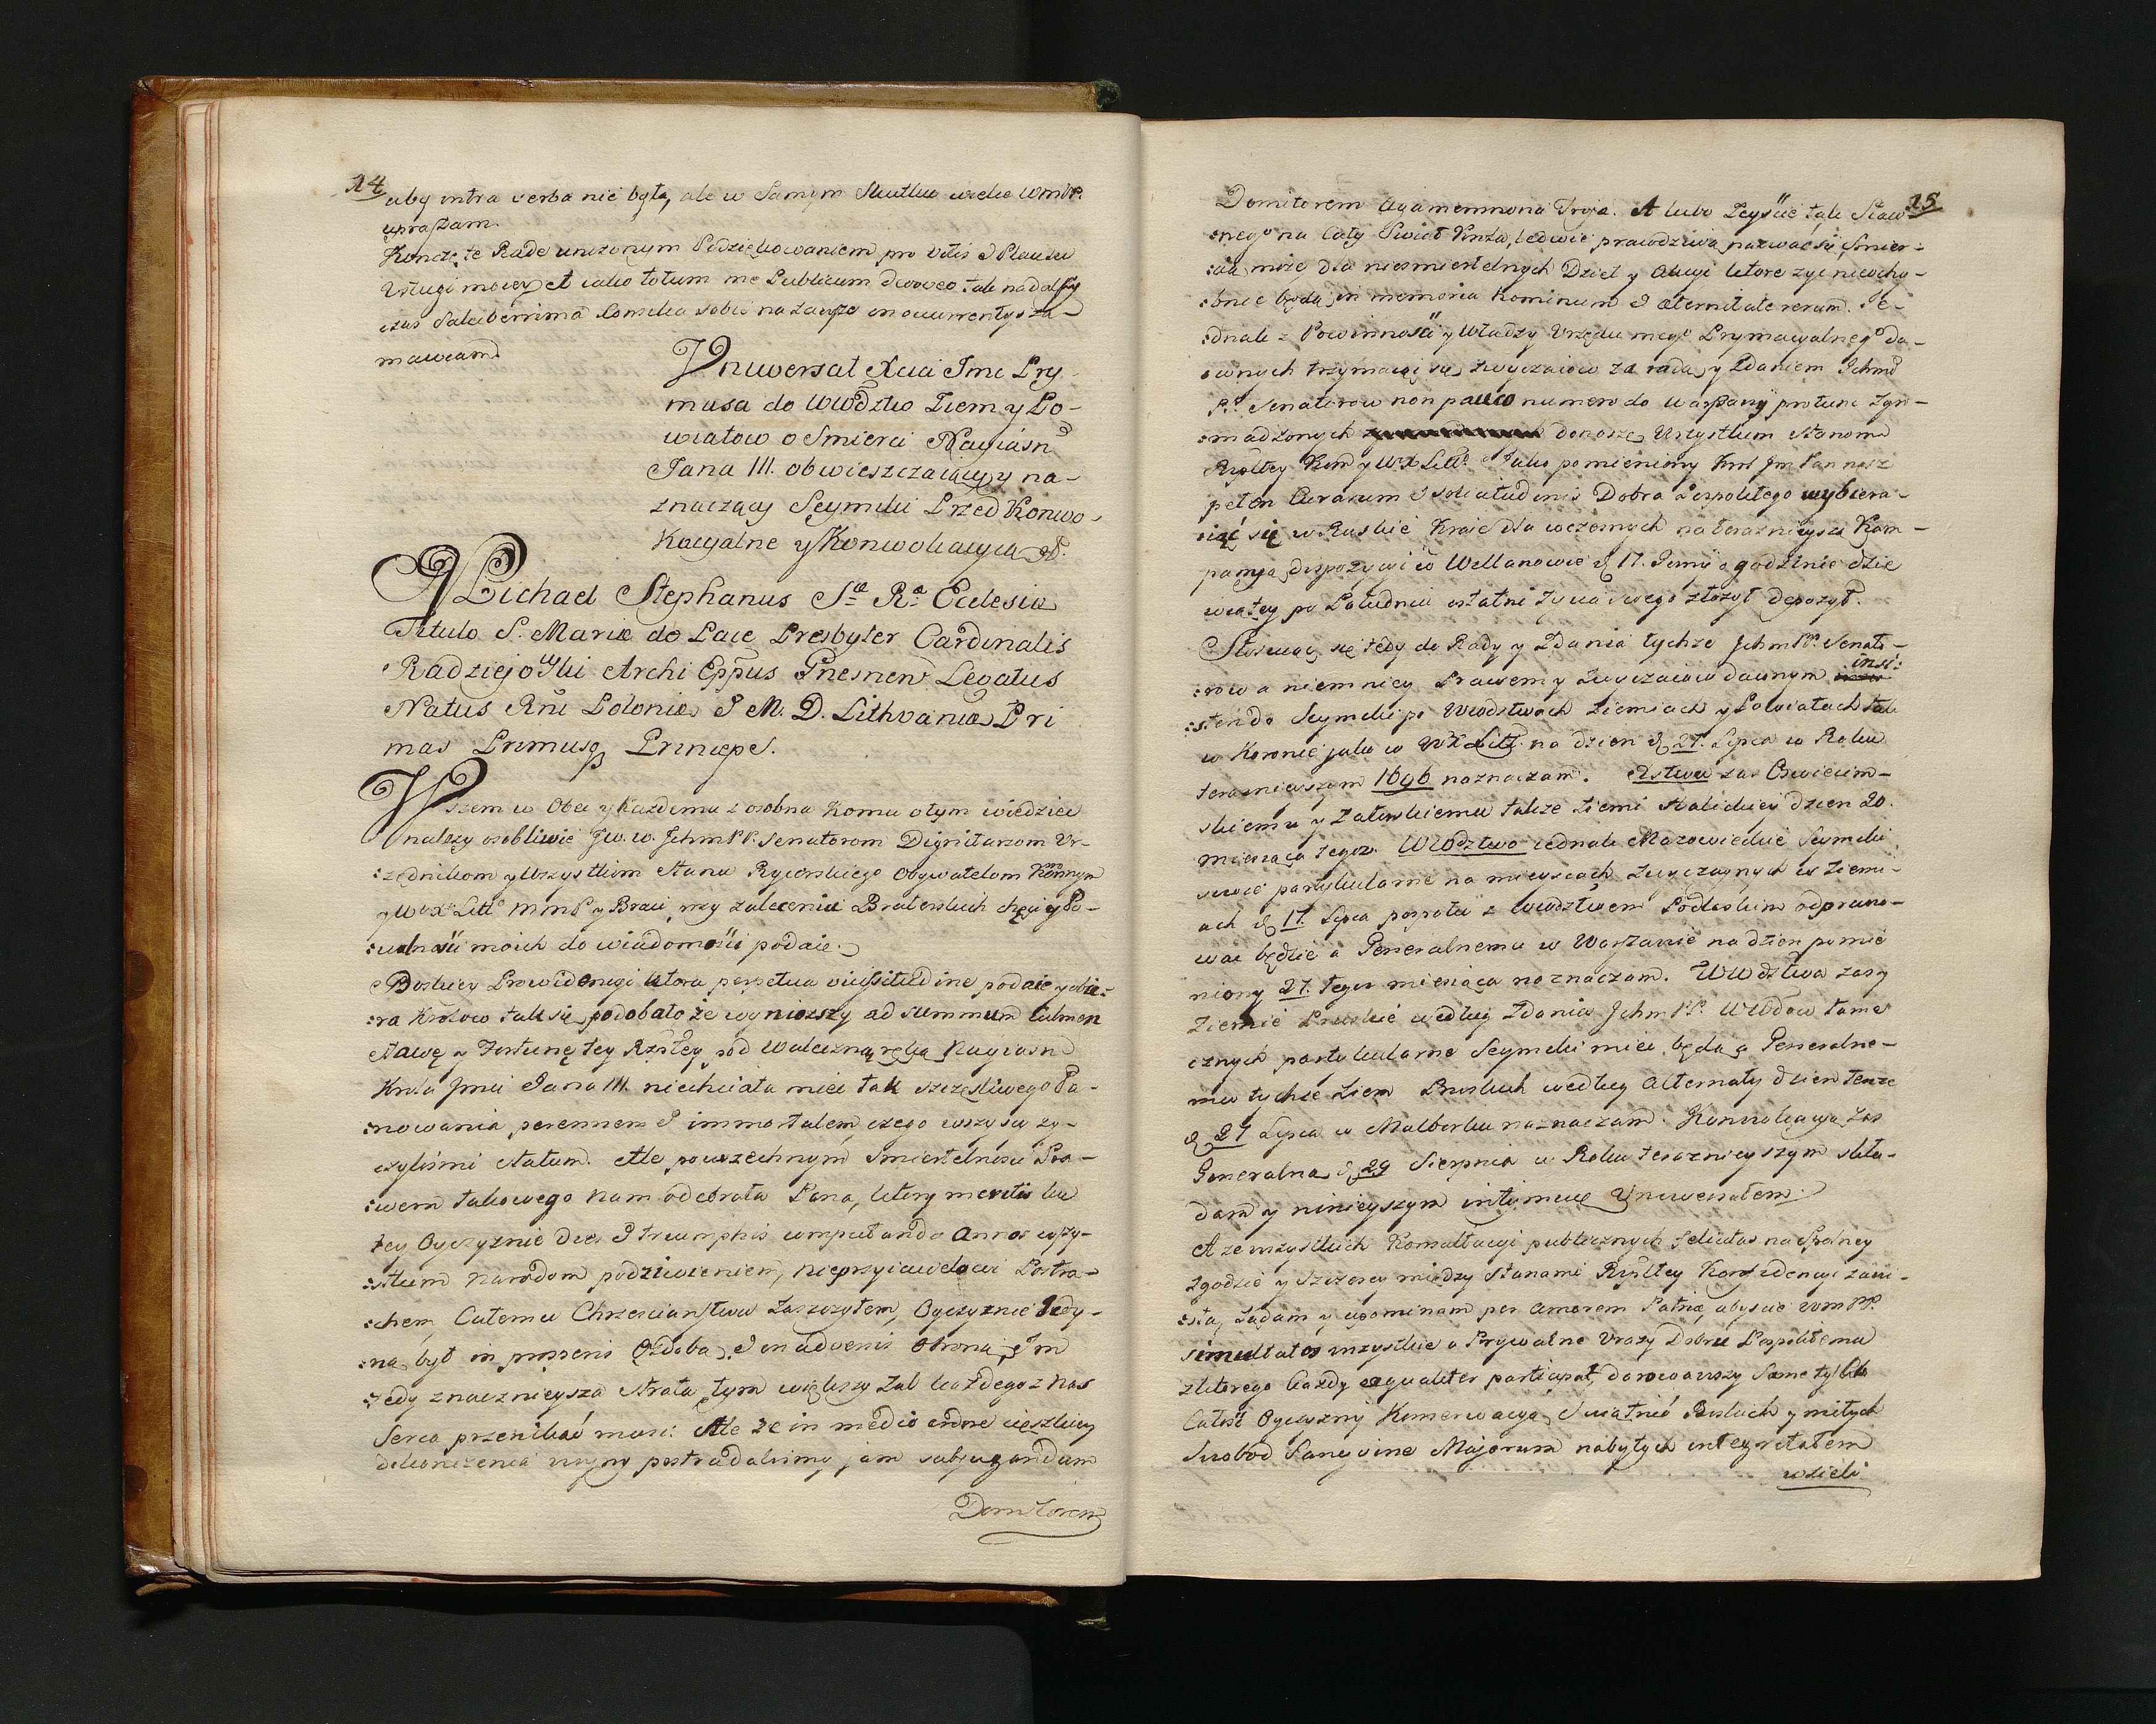 14
aby intra verba nie była, ale w samym Skutku wielce WmPP.
upraszam.
Kończę te Radę uniżonym Podziękowaniem pro Votis & Plausu
Usługi moiey, A iako totum me Publicum devoveo tak na dalszy
czas Saluberrima Consilia sobie na zawsze in ocurrentys za-
mawiam
Uniwersał Xcia Jmci Pry
musa do Wwodztw Ziem y Po-
wiatow o Smierci Nayiasn
Jana III. obwieszczaiący y na-
znaczący Seymiki Przed Konwo-
kacyalne y Konwokacyą
Michael Stephanus S. R. Ecclesiæ
Titulo S. Mariæ de Pace Presbyter Cardinalis
Radziejowski Archi Eppus Gnesnen Legatus
Natus Rni Poloniæ & M. D. Lithvaniæ Pri
mas Primusq Princeps.
Wszem w Obec y Każdemu z osobna Komu o tym wiedziec
należy osobliwie Jw. w. Jchm PP. Senatorom Dignitarzom Ur-
:zędnikom y Wszystkim Stanu Rycerskiego Obywatelom Koronnym
y W. X. Litt MmP y Braci przy zaleceniu Braterskich chęci y Po-
:wolnosci moich do wiadomosci podaie.
Boskiey Prowidencyi ktora perpetua vicissitudine podaie y odbie-
:ra Krolow tak się podobało że wyniozszy ad summum Culmen
sławę y Fortunę tey Rzptey pod Waleczną ręką Nayiasn
Krola Jmci Jana III. niechciała miec tak szczęśliwego Pa-
:nowania perennem & immortalem, czego wszyscy zy-
czylismi statum. Ale powszechnym Smiertelnosci Pra-
:wem takowego nam odebrała Pana, ktory meritis ku
tey Oyczyznie dies & triumphis computando Annos wszy-
:stkim Narodom podziwieniem, nieprzyiacielowi Postra-
:chem, Całemu Chrzescianstwu Zaszczytem, Oyczyznie Jedy-
:na, był in prosperis Ozdoba, & in adversis Obrona, Im
tedy znacznieysza strata, tym większy żal każdego z nas
Serca przenikać musi: Ale że in medio cięszkiey
dokonczenia woyny postradalismy jam subjugandam
Domitorem
15
Domitorem Agamemnona Troja. A lubo Zeyście tak Sław-
:nego na Cały Swiat Krola, ledwie prawdziwą nazwać się Smier-
:cią może dla niesmiertelnych Dzieł y Akcyi ktore żyć nieochy-
:bnie będą in memoria hominum & æternitate rerum. Je-
dnak z Powinnosci y Władzy Urzędu mego Prymacyalnego da-
:wnych trzymaiąc się zwyczaiow za radą y zdaniem Jchm
PP. Senatorow non pauco numero do Warszawy protunc zgro-
:madzonych donoszę Wszystkim Stanom
Rzptey Kor y W. X. Litt Iako pomieniony Krol Jm Pan nasz
pełen Curarum & solicitudinis Dobra Pospolitego wybiera-
iąć się w Ruskie Kraie dla wczesnych na teraznieyszą Kam-
panią dyspozycyi w Wellanowie d. 17. Junii o godzinie dzie
wiątey po Południu ostatni życia swego złożył depozyt.
Stosuiąc się tedy do Rady y Zdania tychże Jchm PP. Senato-
:row a niemniey Prawem y Zwyczaiow dawnym insi:
:stendo Seymiki po Wwodstwach Ziemiach y Powiatach tak
w Koronie jako w W. X. Litt. na dzien d. 27. Lipca w Roku
teraznieyszym 1696 naznaczam. Xstwu zas Oswiecim-
skiemu y Zatorskiemu także Ziemi Halickiey dzien 20.
miesiąca tegoz. Wwodztwo iednak Mazowieckie Seymiki
swoie partykularne na mieyscach Zwyczaynych w Ziemi-
ach d. 17. Lipca pospołu z Wwodztwem Podlaskim odprawo-
wac będzie a Generalnemu w Warszawie na dzien pomie
niony 27. tegoz miesiąca naznaczam. Wwodztwa zas y
Ziemie Pruskie według Zdania Jchm PP. Wwdow tame
cznych partykularne Seymiki miec będą a Generalne-
mu tychże Ziem Pruskich według Alternaty dzien tenze
d. 27 Lipca w Malborku naznaczam. Konwokacyą zas
Generalną d. 29 Sierpnia w Roku teraznieyszym skła-
dam y ninieyszym intymuię Uniwersałem.
A ze wszystkich Konsultacyi publicznych felicitas na Spolney
Zgodzie y szczerey między Stanami Rzptey Konfidencyi zawi-
:sła, Żądam y upominam per Amorem Patriæ abyscie WmPP.
simultates wszystkie a Prywatne Urazy Dobru Pospolitemu
z ktorego Każdy æqualiter participat, darowawszy Same tylko
Całość Oyczyzny Konserwacyą Swiątnic Boskich y miłych
Swobod Sangvine Majorum nabytych integritatem
wzieli